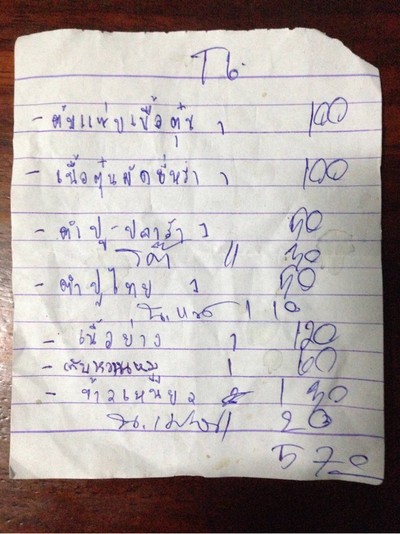 T6.
- ต้มแซ่บเนื้อตุ๋น 1 100
- เนื้อตุ๋นผัดยี่หร่า 1 100
- ตำปู-ปลาร้า 1 50
11 30
- ตำปูไทย 1 50
1 10
- เนื้อย่าง 1 120
- ตับหวานหมู 1 60
- ข้าวเหนียว 1 30
น.เปล่า 1 20
570